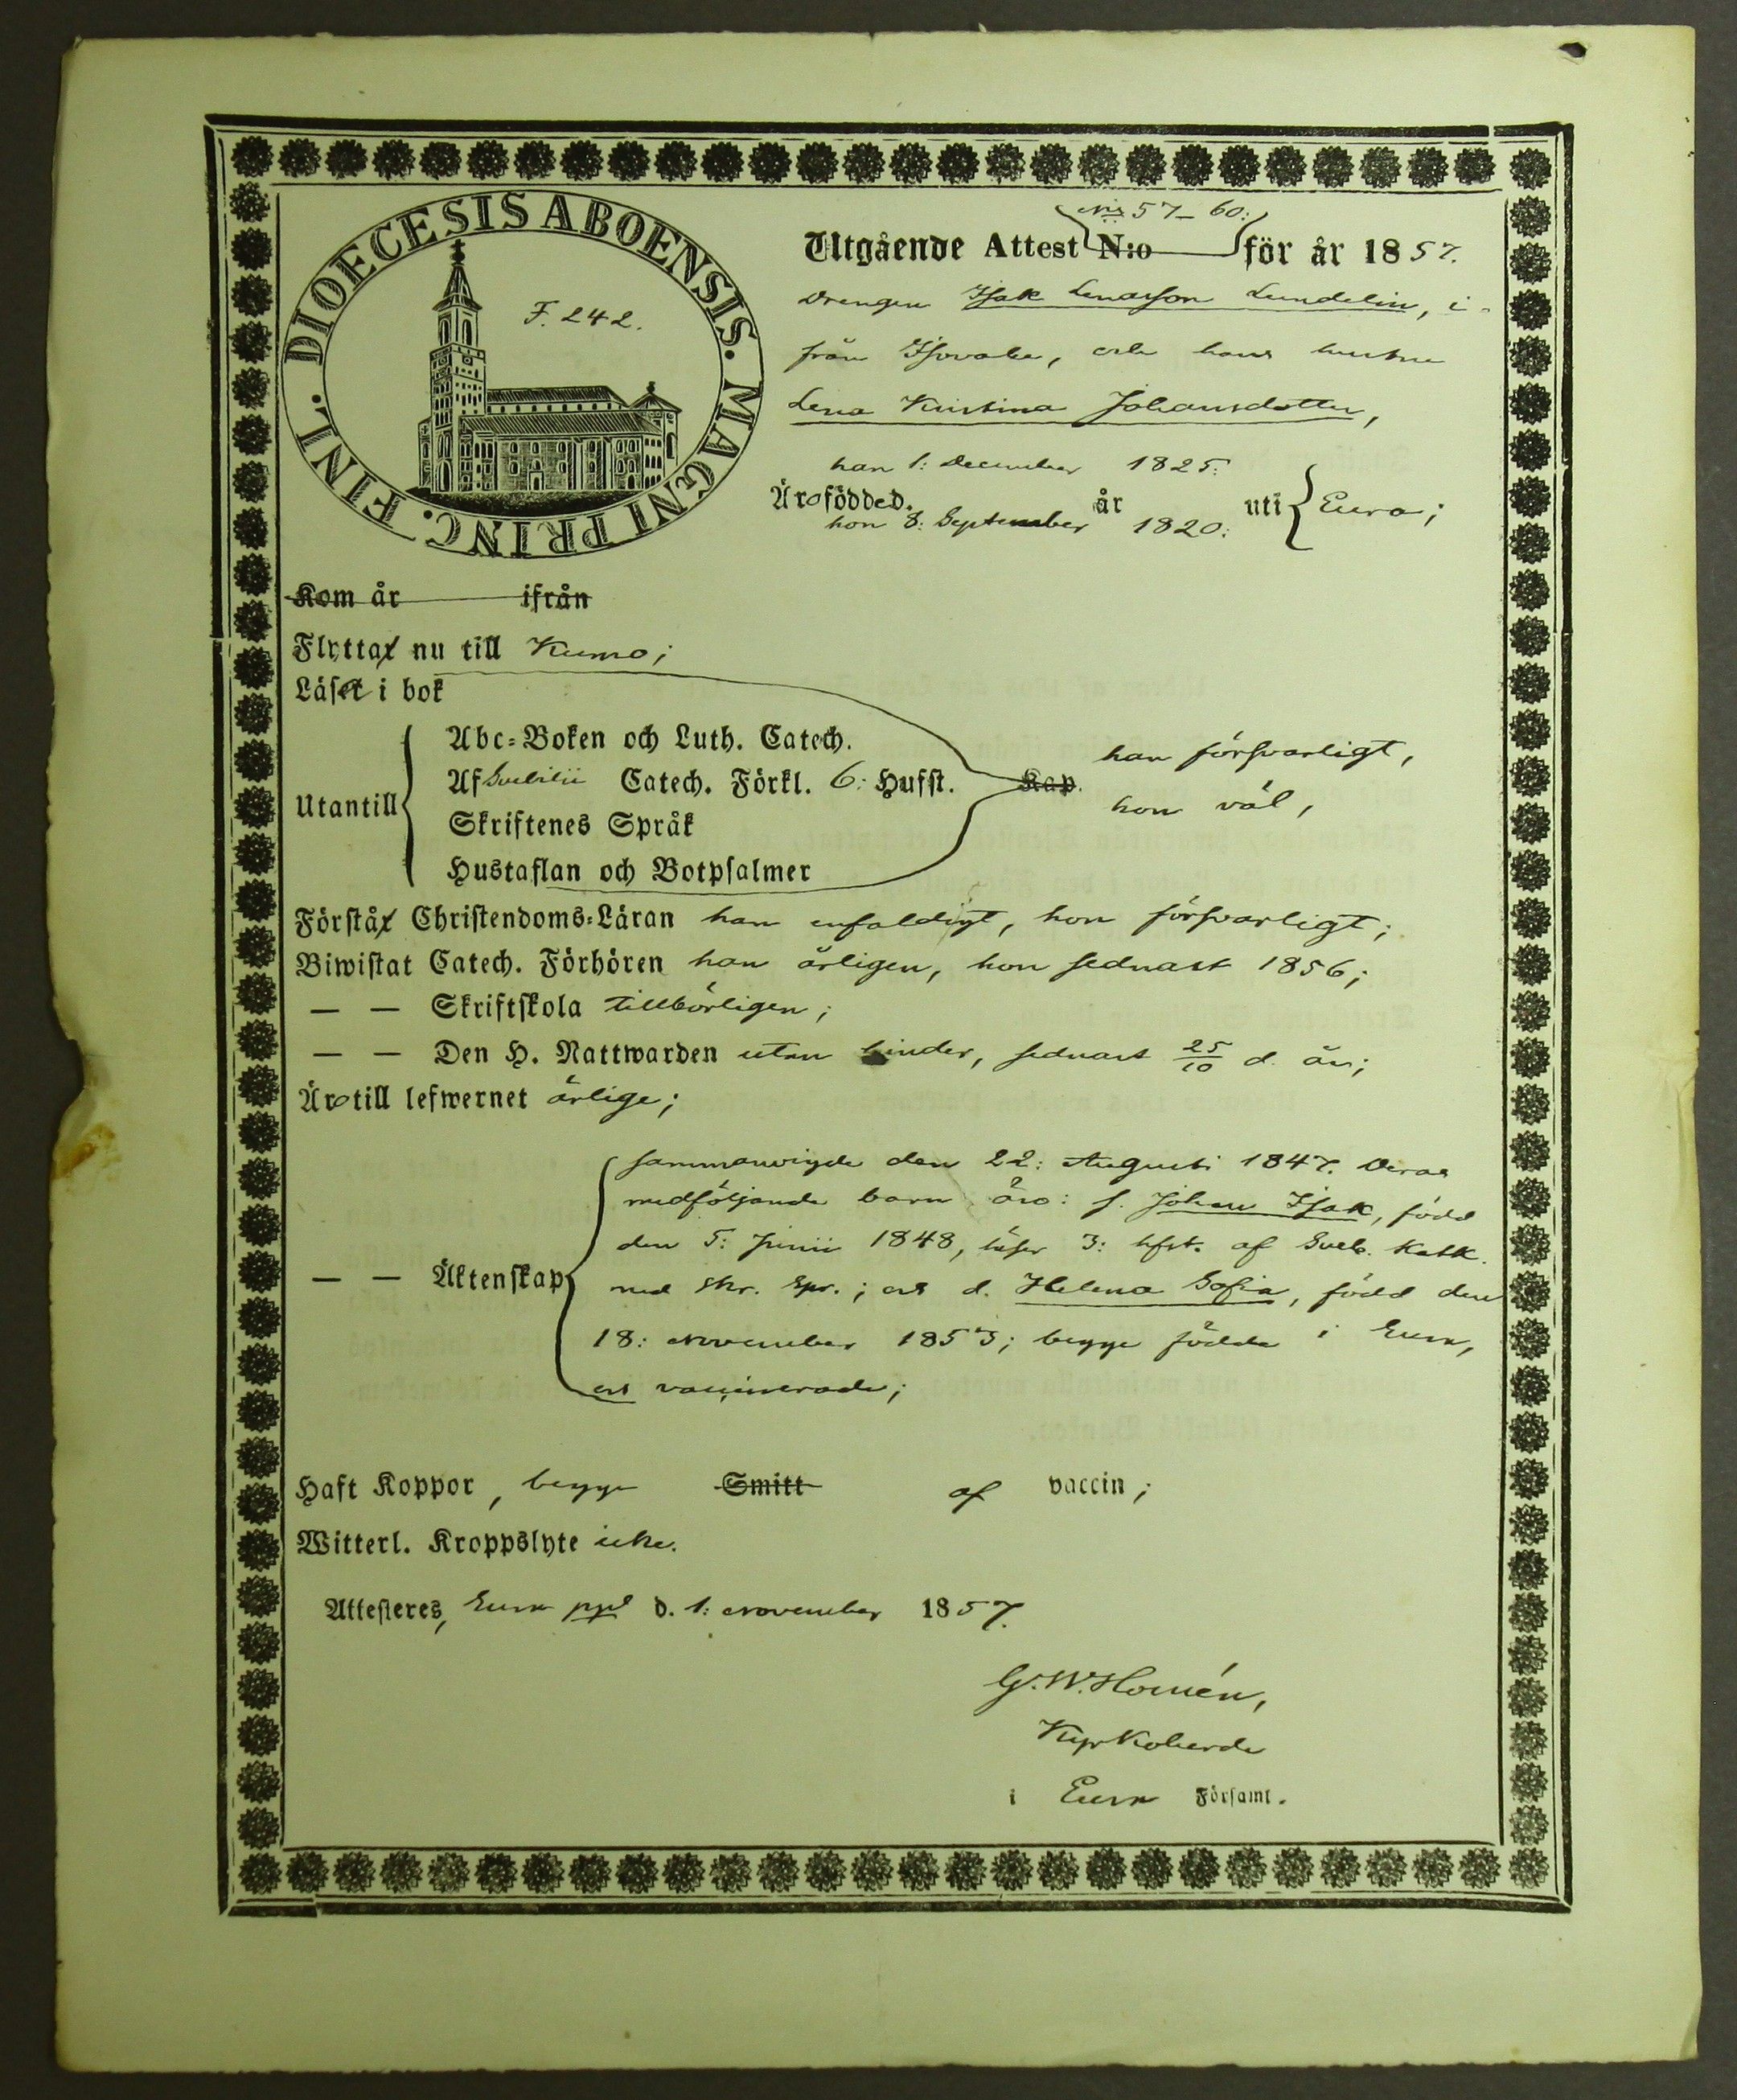 DIOECESIS ABOENSIS. MAGNI PRINC. FINL.
F. 242.
N:is 57–60:
Utgående Attest N:o för år 1857.
Drengen Isak Lenasson Lundelin, i-
från Isovahe, och hans hustru
Lena Kristina Johansdotter,
han 1: December 1825:
Äro födde d. år uti Eura;
hon 8: September 1820:
Kom år ifrån
Flyttar nu till Kumo;
Läser i bok
Abc-Boken och Luth. Catech.
Af Svebilii Catech. Förkl. 6: Hufst. Kap.
Utantill
Skriftenes Språk
Hustaflan och Botpsalmer
han försvarligt,
hon väl,
Förstår Christendoms-Läran han enfaldigt, hon försvarligt;
Biwistat Catech. Förhören han årligen, hon sednast 1856;
— — Skriftskola tillbörligen;
— — Den H. Nattwarden utan hinder, sednast 25/10 d. år;
Äro till lefwernet ärlige;
— — Äktenskap
sammanvigde den 22: Augusti 1847. Deras
medföljande barn äro: s. Johan Isak, född
den 5: Junii 1848, läser 3: hfst. af Sveb. Katk.
med skr. spr.; och d. Helena Sofia, född den
18: November 1853; begge födda i Eura,
och vaccinerade;
Haft Koppor, begge Smitt af vaccin;
Witterl. Kroppslyte icke.
Attesteres, Eura ppl d. 1: November 1857.
G. W. Homén,
Kyrkoherde
i Eura Församl.